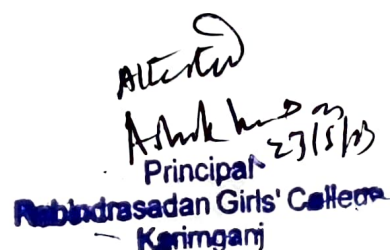 Attested
Ashok
23/5/03
Principal
Rabindrasadan Girls' College
Karimganj